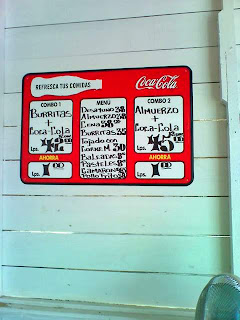 REFRESCA TUS COMIDAS
Coca-Cola
COMBO 1
BURRITAS
+
COCA-COLA
Lps.
AHORRA
Lps. 1.00
MENÚ
DESAYUNO 38
ALMUERZO 38
CENA 38.00
BURRITAS 35
TAJADO CON
CORRE M 30
BALEADAS 8
PASTELES 8
CAMARON
POLLO FRITO
COMBO 2
ALMUERZO
+
COCA-COLA
Lps. 45
AHORRA
Lps. 1.00